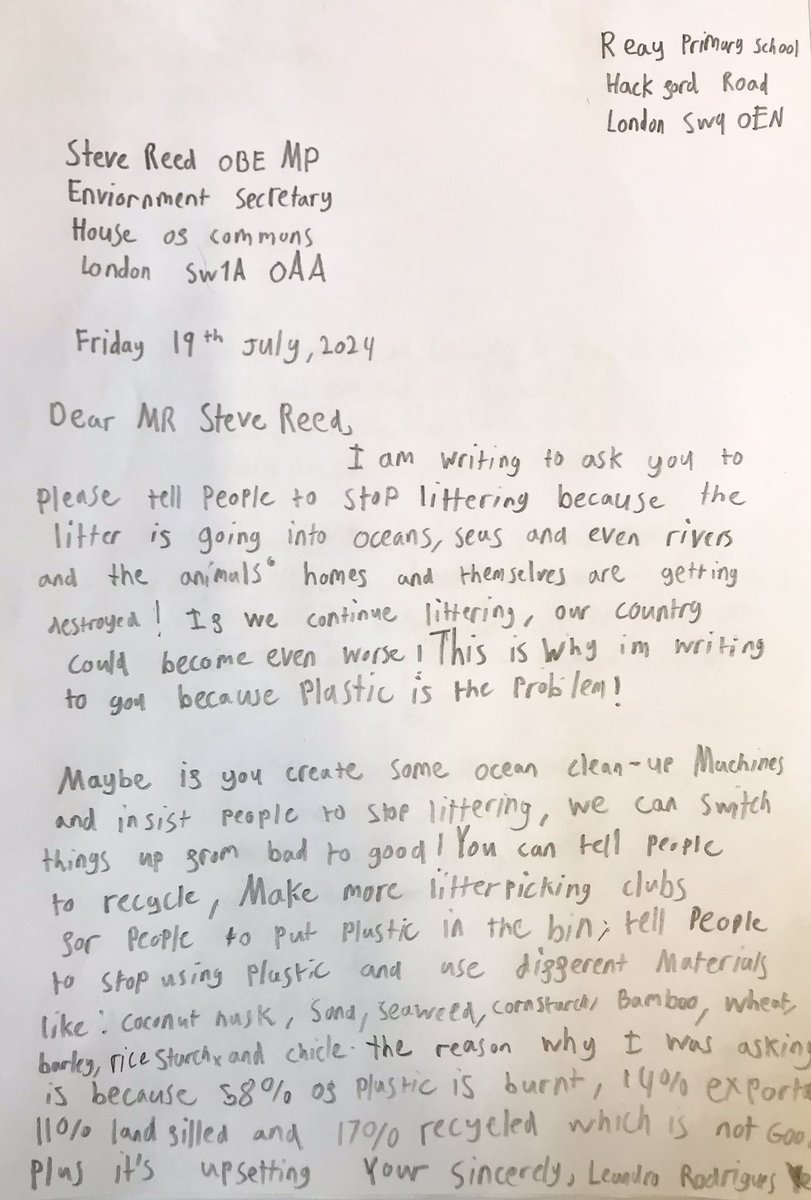 Reay Primary School
Hackford Road
London SW9 0EN
Steve Reed OBE MP
Enviornment Secretary
House of commons
London SW1A 0AA
Friday 19th July, 2024
Dear MR Steve Reed,
I am writing to ask you to
please tell People to stop littering because the
litter is going into oceans, seas and even rivers
and the animals' homes and themselves are getting
destroyed! If we continue littering, our country
could become even worse! This is why im writing
to you because Plastic is the Problem!
Maybe if you create some ocean clean-up Machines
and insist people to stop littering, we can switch
things up from bad to good! You can tell people
to recycle, Make more litterpicking clubs
for People to put plastic in the bin; tell People
to stop using plastic and use different Materials
like: coconut husk, Sand, seaweed, cornstarch, Bamboo, wheat,
barley, rice starch, and chicle. the reason why I was asking
is because 58% of plastic is burnt, 14% export
11% landfilled and 17% recycled which is not Goo
Plus it's upsetting Your Sincerely, Leandro Rodrigues